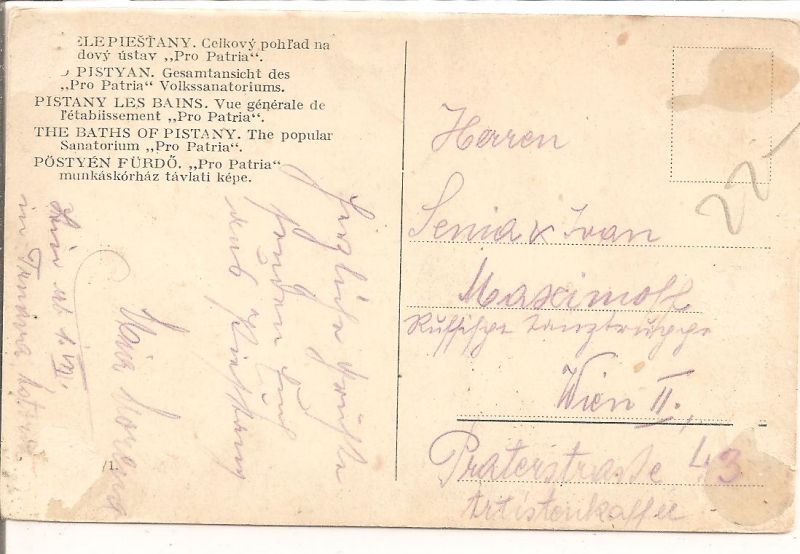 ELE PIEŠŤANY. Celkový pohľad na
dový ústav „Pro Patria“.
PISTYAN. Gesamtansicht des
„Pro Patria“ Volkssanatoriums.
PISTANY LES BAINS. Vue générale de
l'établissement „Pro Patria“.
THE BATHS OF PISTANY. The popular
Sanatorium „Pro Patria“.
PÖSTYÉN FÜRDŐ. „Pro Patria“
munkáskórház távlati képe.
Herzliche Grüße
senden Euch
aus Pistyan
/1.
22-
Herren
Senia & Ivan
Maximoff
Russische Tanztruppe
Wien II.
Praterstrasse 43
Artistenkaffee